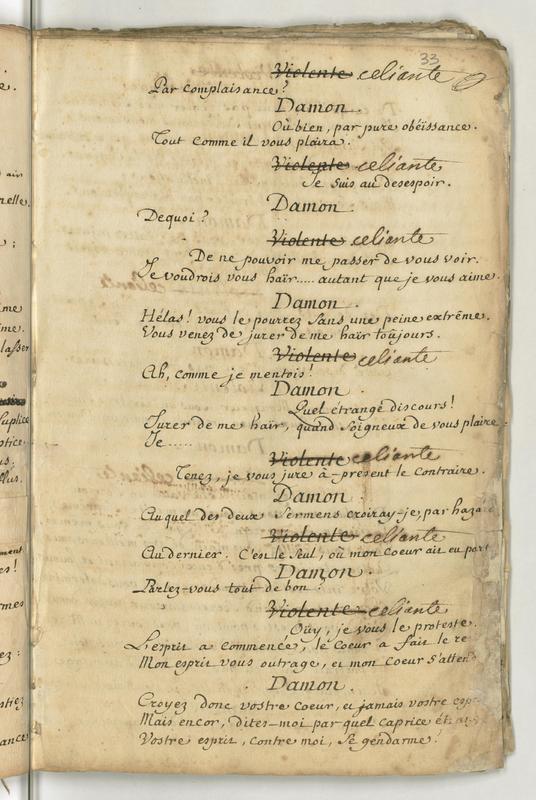 33
Violente celiante
Par complaisance?
Damon.
Où bien, par pure obéïssance.
Tout comme il vous plaira.
Violente celiante
Je suis au desespoir.
Damon.
Dequoi?
Violente celiante
De ne pouvoir me passer de vous voir.
Je voudrois vous haïr.... autant que je vous aime.
Damon.
Hélas! vous le pourrez sans une peine extrême.
Vous venez de jurer de me haïr toûjours.
Violente celiante
Ah, comme je mentois!
Damon.
Quel étrange discours!
Jurer de me haïr, quand soigneux de vous plaire
Je......
Violente celiante
Tenez, je vous jure à-présent le contraire.
Damon.
Auquel des deux sermens croiray-je, par haza
Violente celiante
Au dernier. C'est le seul, où mon coeur ait eu part
Damon.
Parlez-vous tout-de bon?
Violente celiante
Oüy, je vous le proteste.
L'esprit a commencé, le coeur a fait le re
Mon esprit vous outrage, et mon coeur s'atten
Damon.
Croyez donc vostre coeur, et jamais vostre esp
Mais encor, dites-moi par quel caprice
Vostre esprit, contre moi, se gendarme?